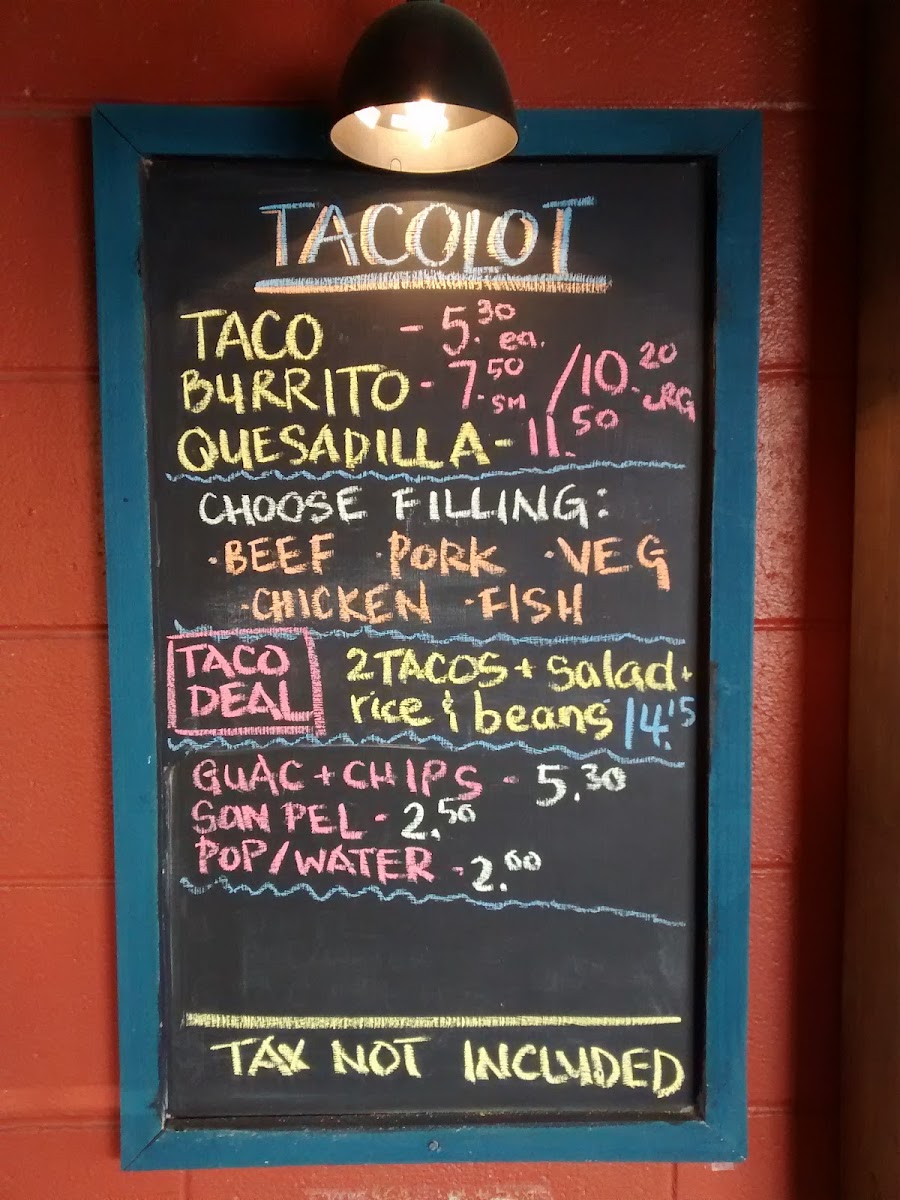 TACOLOT
TACO - 5.30 ea.
BURRITO - 7.50 SM / 10.20 LRG
QUESADILLA - 11.50
CHOOSE FILLING:
·BEEF ·PORK ·VEG
·CHICKEN ·FISH
TACO DEAL
2 TACOS + salad +
rice & beans 14.15
GUAC + CHIPS - 5.30
SAN PEL - 2.50
POP/WATER - 2.00
TAX NOT INCLUDED